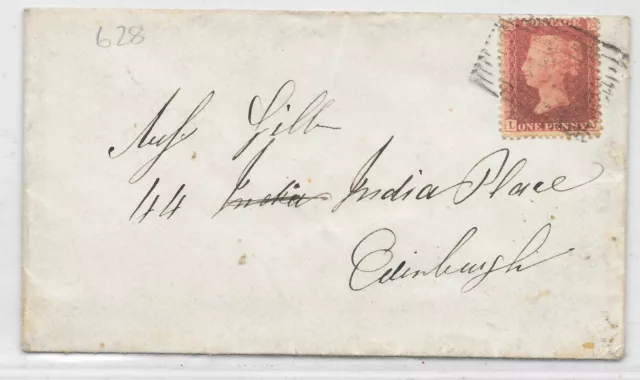 628
POSTAGE
L ONE PENNY
Miss Gill
44 India India Place
Edinburgh